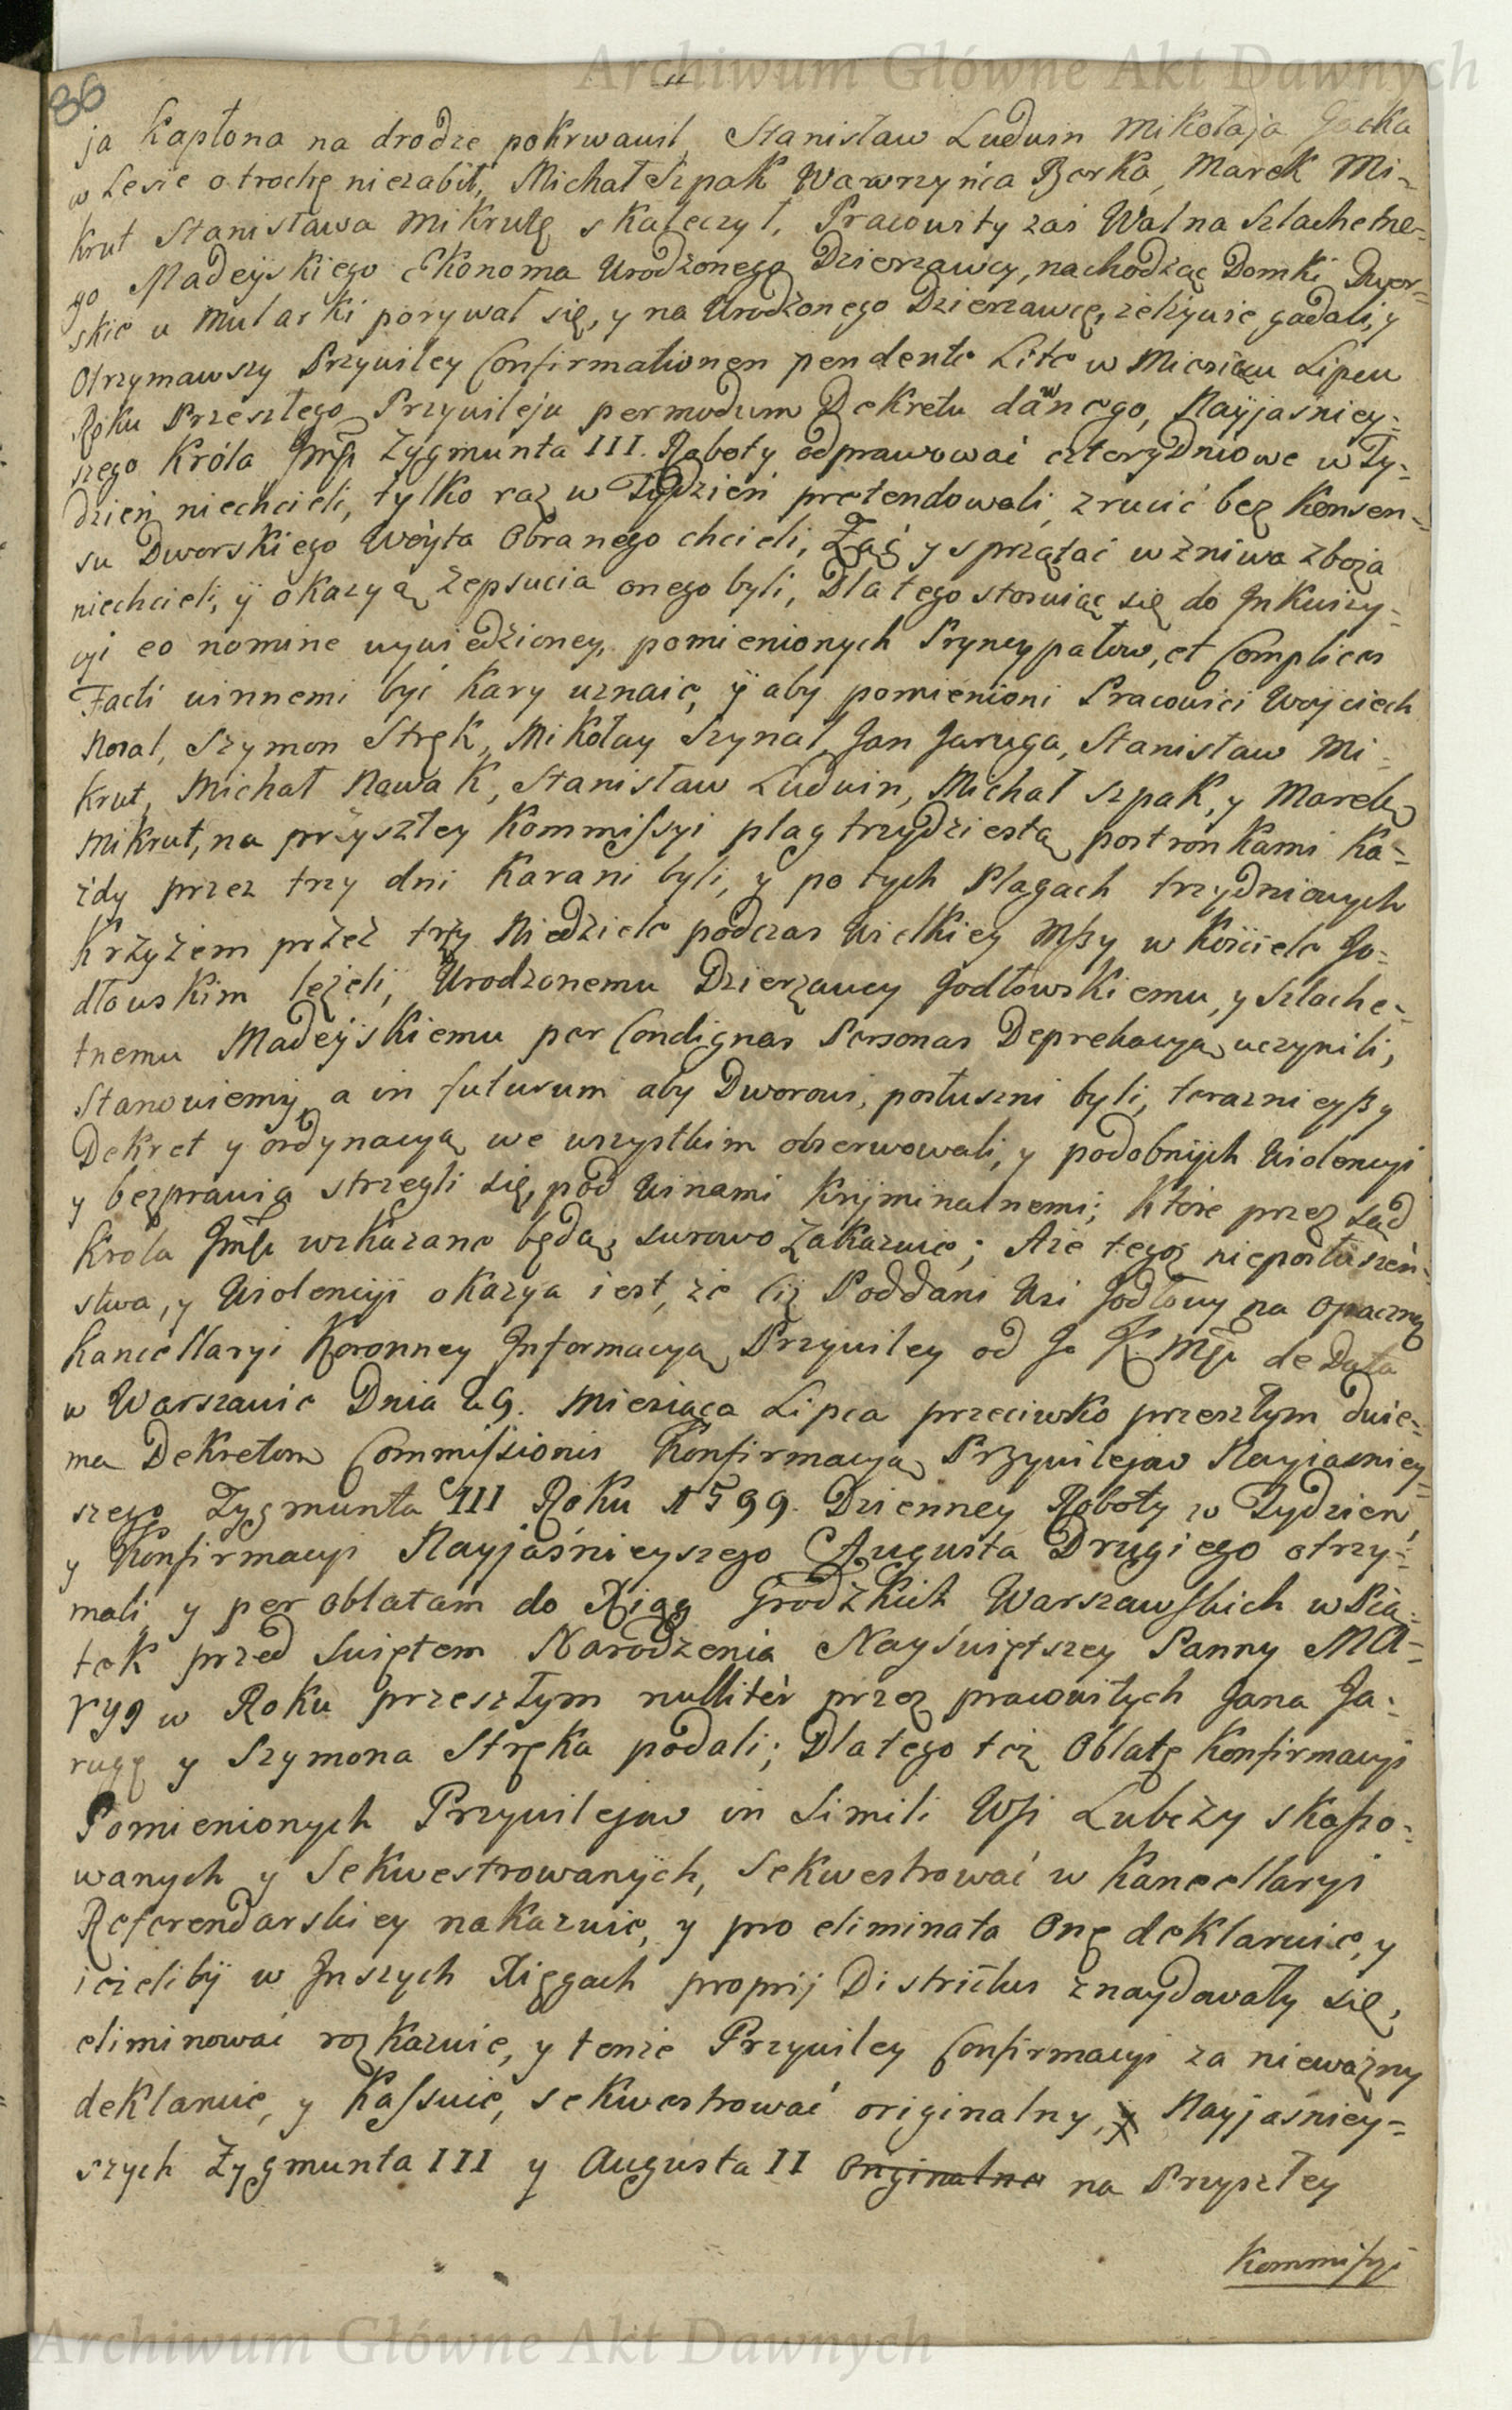 Archiwum Główne Akt Dawnych
86
ja Kapłona na drodze pokrwawił, Stanisław Luduin Mikołaja Gacka
w Lesie o trochę niezabił, Michał Szpak Wawrzyńca Borka, Marek Mi-
krut Stanisława Mikrutę skaleczył, Pracowity zaś Walna Szlachetne-
go Madeyskiego Ekonoma Urodzonego Dzierzawcy, nachodząc Domki Dwor-
skie u Mularki porywał się, y na Urodzonego Dzierzawcę, zelżywie gadali, y
Otrzymawszy Przywiley Confirmationen pendente Lite w Miesiącu Lipcu
Roku Przeszłego Przywileju permodum Dekretu dawnego, Nayjaśniey-
szego Króla Jmśi Zygmunta III. Roboty odprawować czterydniowe w Ty-
dzień niechcieli, tylko raz w Tydzień pretendowali, zrucić bez Konsen-
su Dworskiego Woyta Obranego chcieli, Żąć y sprzątać w żniwa zboża
niechcieli, ÿ okazyą zepsucia onego byli, Dlatego stosuiąc się do Inkwizy-
cyi eo nomine wywiedzioney, pomienionych Pryncypałow, et Complices
Facti winnemi być kary uznaie, ÿ aby pomienioni Pracowici Woyciech
Nosal, Szymon Stręk, Mikołay Szynal, Jan Jaruga, Stanisław Mi-
krut, Michał Nawak, Stanisław Luduin, Michał Szpak, y Marek
Mikrut, na przyszłey Kommissyi plag trzydziestą postronkami Ka-
żdy przez trzy dni Karani byli, y po tych Plagach trzydniowych
Krzyżem przez trzy Niedziele podczas Wielkiey Mszy w Kościele Jo-
dłowskim leżeli, Urodzonemu Dzierzawcy Jodłowskiemu, y Szlache-
tnemu Madeyskiemu per Condignas Personas Deprekacyą uczynili,
Stanowiemy, a in futurum aby Dworowi, posłuszni byli, teraznieyszy
Dekret y ordynacyą we wszystkim obserwowali, y podobnych Wiolencyi
y bezprawia strzegli się, pod Winami Kryminalnemi; które przez Sąd
Krola Jmśi wskazane będą, surowo zakazuie; Aże tegoż nieposłuszeń-
stwa, y Wiolencyi okazya iest, że ciż Poddani Wsi Jodłowy na opaczną
Kancellaryi Koronney Informacyą Przywiley od J. K. Mśi de Data
w Warszawie Dnia 29. Miesiąca Lipca przeciwko przeszłym dwie-
ma Dekretom Commissionis Konfirmacyą Przywilejow Nayjaśniey-
szego Zygmunta III Roku 1599. Dzienney Roboty w Tydzień,
y Konfirmacyi Nayjaśnieyszego Augusta Drugiego otrzy-
mali y per oblatam do Xiąg Grodzkich Warszawskich w Pią-
tek przed Swiętem Narodzenia Nayświętszey Panny MA-
RYI w Roku przeszłym nulliter przez pracowitych Jana Ja-
rugę y Szymona Stręka podali; Dlatego też Oblatę Konfirmacyi
Pomienionych Przywilejow in Simili Wsi Lubczy skasso-
wanych y Sekwestrowanych, Sekwestrować w Kancellaryi
Referendarskiey nakazuie, y pro eliminata Onę deklaruie, y
ieżeliby w Inszych Xięgach proprij Districtus znaydowały się,
eliminować rozkazuie, y tenże Przywiley Confirmacyi za nieważny
deklaruie, y Kassuie, sekwestrować originalny, y Nayjaśniey-
szych Zygmunta III y Augusta II Originalne na Przyszłey
Kommissyi
Archiwum Główne Akt Dawnych